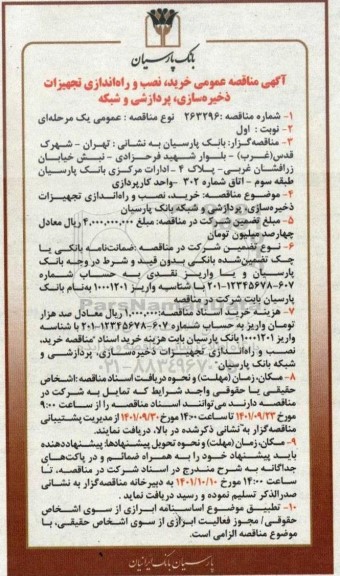 بانک پارسیان
آگهی مناقصه عمومی خرید، نصب و راه‌اندازی تجهیزات
ذخیره‌سازی، پردازشی و شبکه
۱- شماره مناقصه: ۲۶۳۲۹۶ نوع مناقصه: عمومی یک مرحله‌ای
۲- نوبت: اول
۳- مناقصه‌گزار: بانک پارسیان به نشانی: تهران - شهرک
قدس(غرب) - بلوار شهید فرحزادی - نبش خیابان
زرافشان غربی- پلاک ۴ -ادارات مرکزی بانک پارسیان
طبقه سوم - اتاق شماره ۳۰۲ -واحد کارپردازی
۴- موضوع مناقصه: خرید، نصب و راه‌اندازی تجهیزات
ذخیره‌سازی، پردازشی و شبکه بانک پارسیان
۵- مبلغ تضمین شرکت در مناقصه: مبلغ ۴,۰۰۰,۰۰۰,۰۰۰ ریال معادل
چهارصد میلیون تومان
۶- نوع تضمین شرکت در مناقصه :ضمانت‌نامه بانکی یا
چک تضمین‌شده بانکی بدون قید و شرط در وجه بانک
پارسیان و یا واریز نقدی به حساب شماره
۲۰۱-۱۲۳۴۵۶۷۸-۶۰۷ با شناسه واریز ۱۰۰۰۱۲۰۱ به‌نام بانک
پارسیان بابت شرکت در مناقصه
۷- هزینه خرید اسناد مناقصه:۱,۰۰۰,۰۰۰ ریال معادل صد هزار
تومان واریز به حساب شماره ۶۰۷-۱۲۳۴۵۶۷۸-۲۰۱ با شناسه
واریز ۱۰۰۰۱۲۰۱ بانک پارسیان بابت هزینه خرید اسناد "مناقصه خرید،
نصب و راه‌اندازی تجهیزات ذخیره‌سازی، پردازشی و
شبکه بانک پارسیان"
۸- مکان، زمان (مهلت) و نحوه دریافت اسناد مناقصه :اشخاص
حقیقی یا حقوقی واجد شرایط که تمایل به شرکت در
مناقصه دارند می‌توانند اسناد مناقصه را از ساعت ۹:۰۰
مورخ ۱۴۰۱/۰۹/۲۳ تا ساعت ۱۴:۰۰ مورخ ۱۴۰۱/۰۹/۳۰ از مدیریت پشتیبانی
مناقصه‌گزار به نشانی ذکرشده در بالا، دریافت نمایند.
۹- مکان، زمان (مهلت) و نحوه تحویل پیشنهادها: پیشنهاددهنده
باید پیشنهاد خود را به همراه ضمائم و در پاکت‌های
جداگانه به شرح مندرج در اسناد شرکت در مناقصه، تا
ساعت ۱۴:۰۰ مورخ ۱۴۰۱/۱۰/۱۰ به دبیرخانه مناقصه‌گزار به نشانی
صدرالذکر تسلیم نموده و رسید دریافت نماید.
۱۰- تطبیق موضوع اساسنامه ابرازی از سوی اشخاص
حقوقی/ مجوز فعالیت ابرازی از سوی اشخاص حقیقی، با
موضوع مناقصه الزامی است.
پارسیان بانک ایرانیان